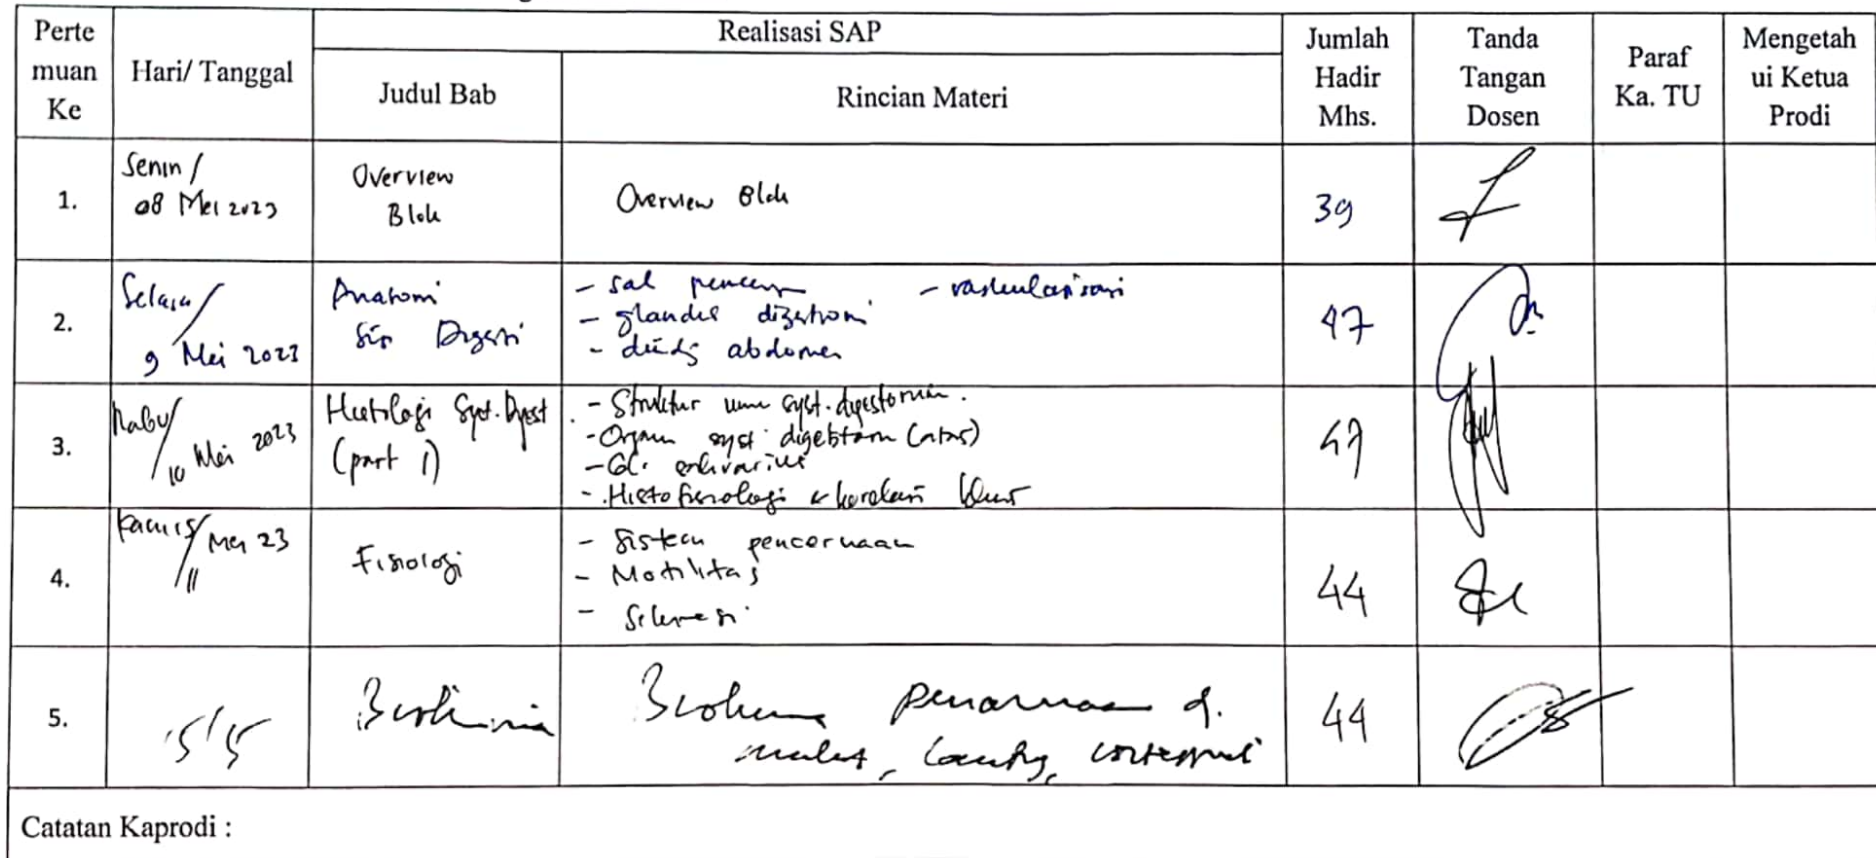 Perte muan Ke
Hari/ Tanggal
Realisasi SAP
Judul Bab
Rincian Materi
Jumlah Hadir Mhs.
Tanda Tangan Dosen
Paraf Ka. TU
Mengetah ui Ketua Prodi
1.
Senin /
08 Mei 2023
Overview
Blok
Overview Blok
39
2.
Selasa /
9 Mei 2023
Anatomi
Sis Digesti
- sal pencern
- vaskularisasi
- glandula digestiom
- dindg abdomen
47
3.
Rabu/
10 Mei 2023
Histologi Syst. Digest
(part 1)
- Struktur umu syst. digestorium.
- Organ syst digestorm (atas)
- Gl. salivarius
- Histofisiologi & korelasi klinis
47
4.
Kamis/
11 Mei 23
Fisiologi
- Sistem pencernaan
- Motilitas
- Sekresi
44
5.
15/5
Biokimia
Biokim pencernaan d.
mulut, lambg, intestinal
44
Catatan Kaprodi :